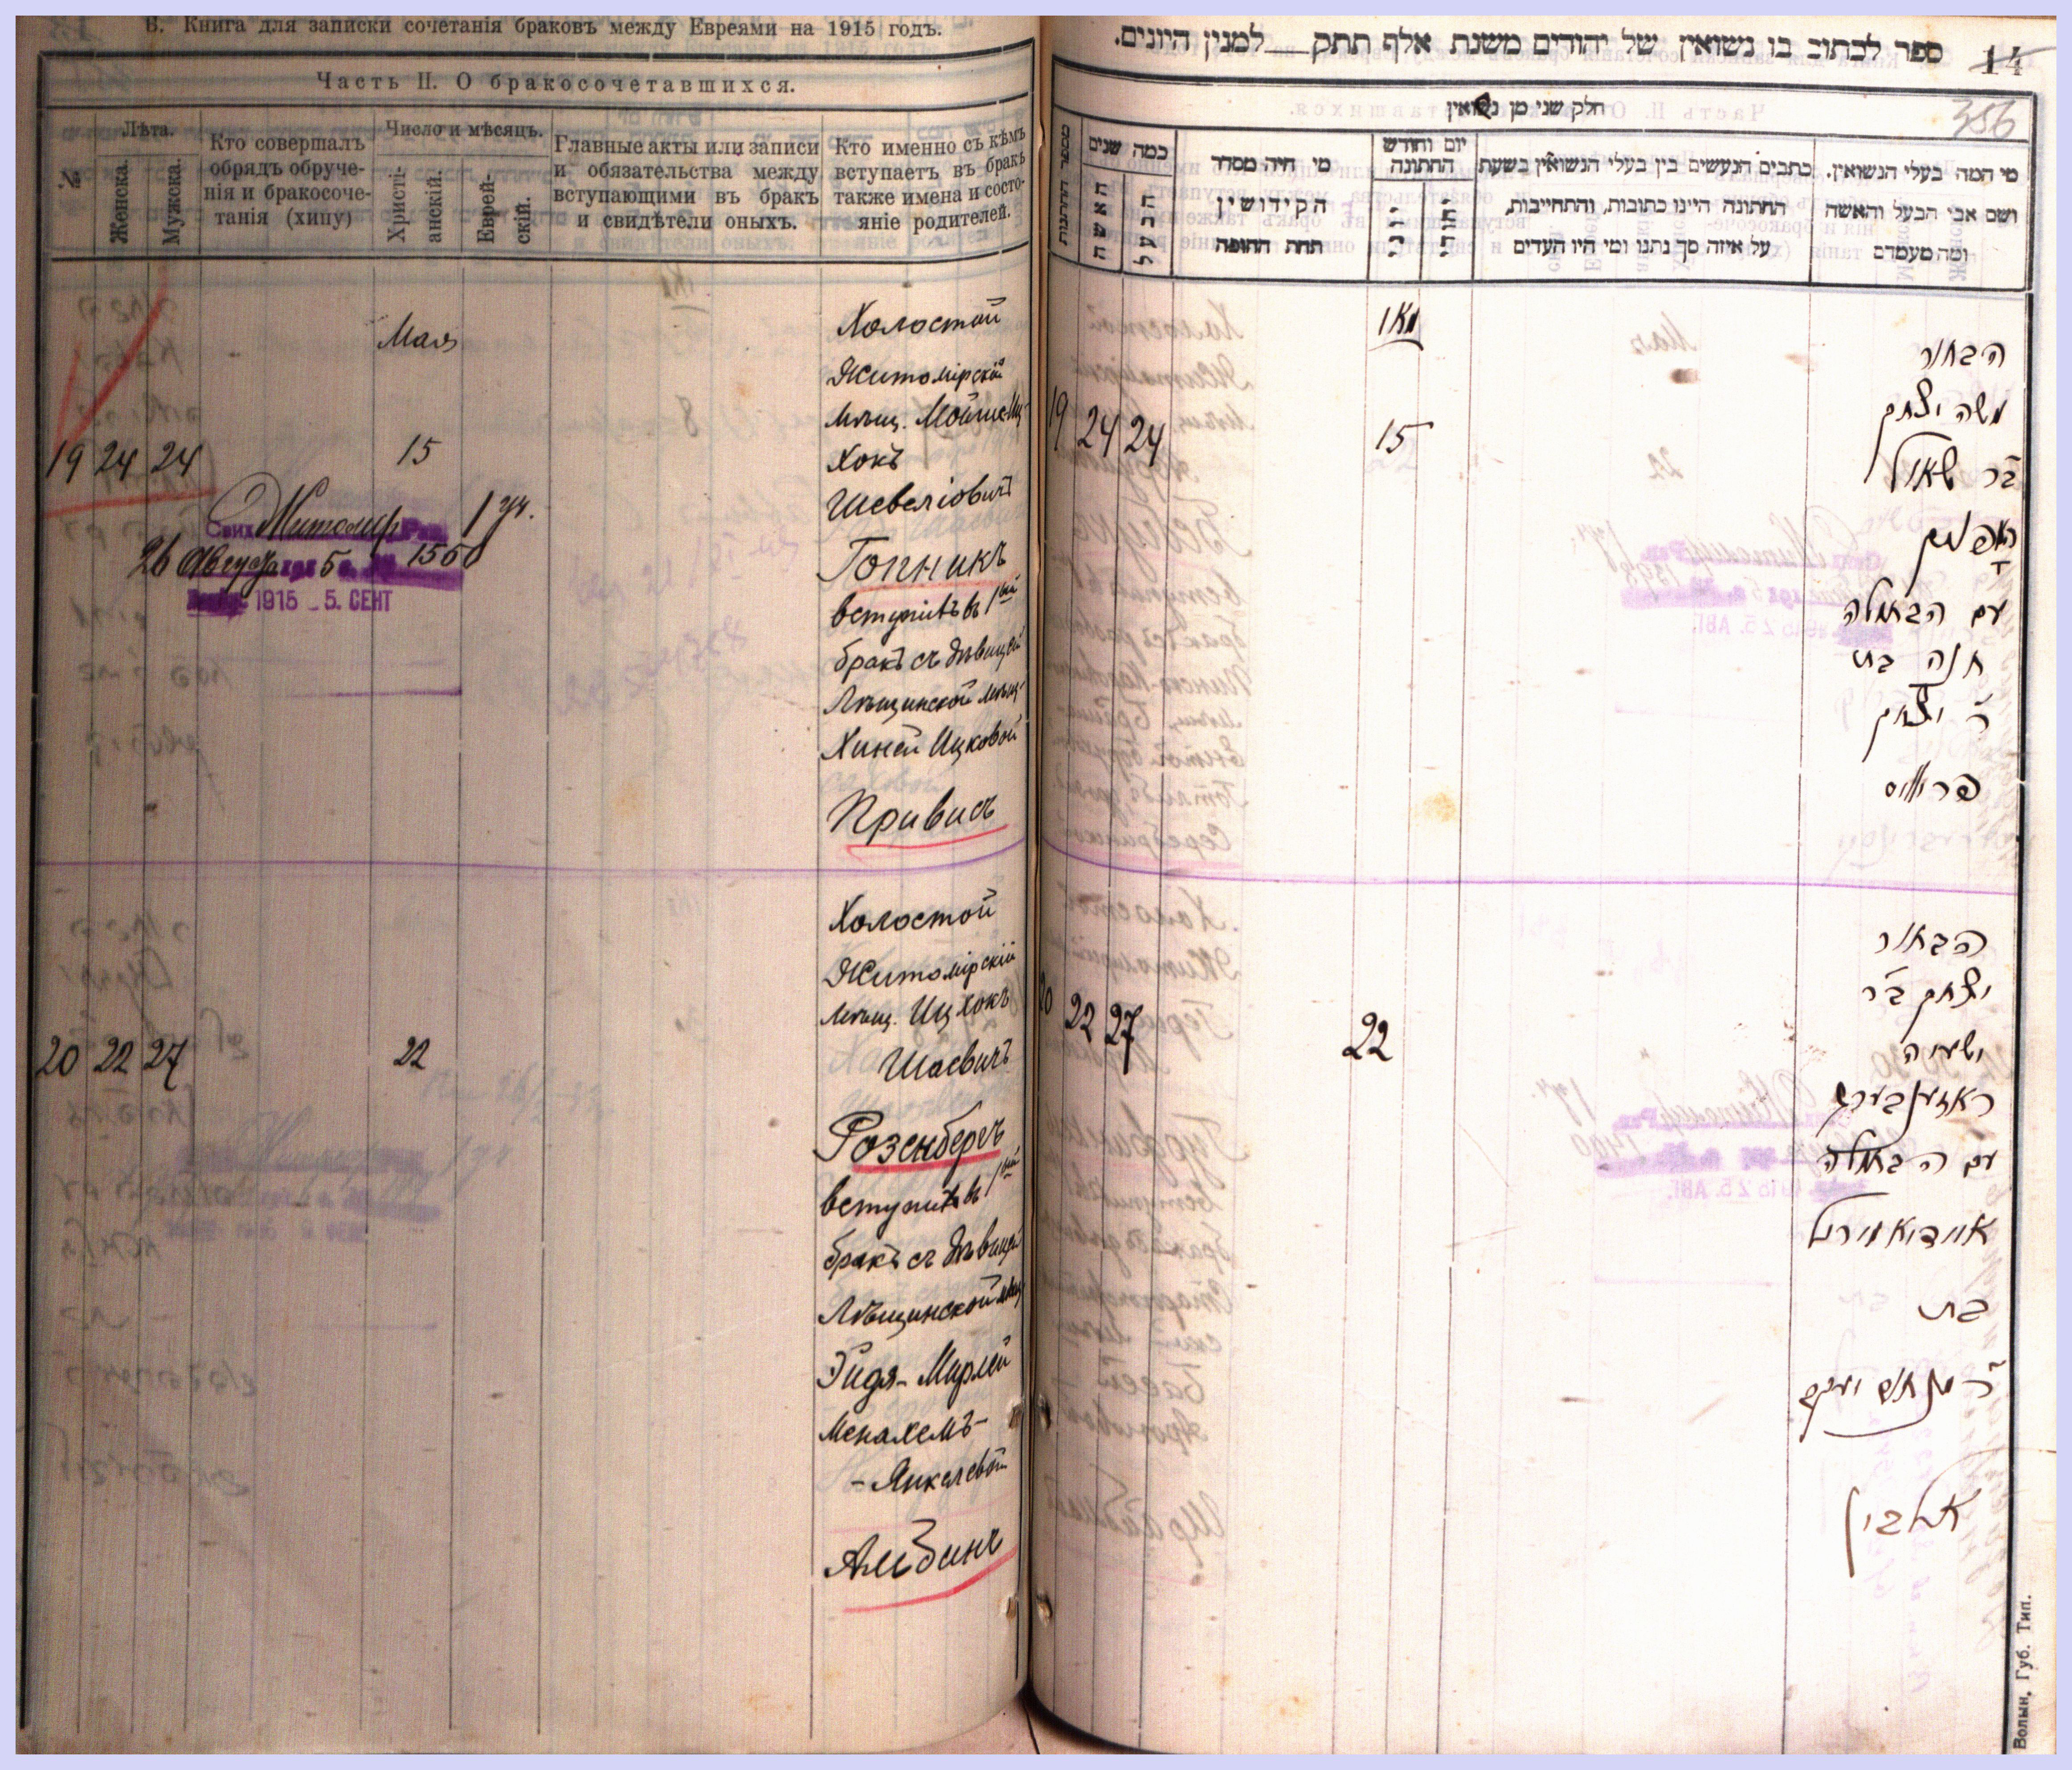 В. Книга для записки сочетанія браковъ между Евреями на 1915 годъ.
Часть II. О бракосочетавшихся.
№
Лѣта.
Женска.
Мужска.
Кто совершалъ
обрядъ обруче-
нія и бракосоче-
танія (хипу)
Число и мѣсяцъ.
Христі-
анскій.
Еврей-
скій.
Главные акты или записи
и обязательства между
вступающими въ бракъ
и свидѣтели оныхъ.
Кто именно съ кѣмъ
вступаетъ въ бракъ
также имена и состо-
яніе родителей.
Мая
19 24 24
15
Житомир 1 уч.
26 Августа 5 1550
1915 - 5. СЕНТ
Холостой
Житомірскій
мѣщ. Мойше-Иц-
хокъ
Шевеліовичъ
Гопникъ
вступилъ въ 1ый
бракъ съ дѣвицей
Лѣщинской мѣщ.
Хиней Ицковой
Привисъ
20 22 27
22
Холостой
Житомірскій
мѣщ. Ицхокъ
Шаевичъ
Розенбергъ
вступилъ въ 1ый
бракъ съ дѣвицей
Лѣщинской мѣщ.
Эйдя-Мирлей
Менахемъ-
-Янкелевой
Альбинъ
ספר לכתוב בו נשואין של יהודים משנת אלף תתק למנין היונים.
14
356
חלק שני מן נשואין
מספר החתונות
כמה שנים
האשה
הבעל
מי היה מסדר
הקידושין
תחת החופה
יום וחודש
החתונה
יוני
יהודי
כתבים הנעשים בין בעלי הנשואין בשעת
החתונה היינו כתובות, והתחייבות,
על איזה סך נתנו ומי היו העדים
מי המה בעלי הנשואין.
ושם אבי הבעל והאשה
ומה מעמדם
19 24 24
15
הבחור
משה יצחק
ב״ר שאול
האפניק
עם הבתולה
חנה בת
ר׳ יצחק
פריוויס
20 22 27
22
הבחור
יצחק ב״ר
ישעיה
ראזענבערג
עם הבתולה
איידיא מירל
בת
ר׳ מנחם יעקב
אלבין
Волын. Губ. Тип.